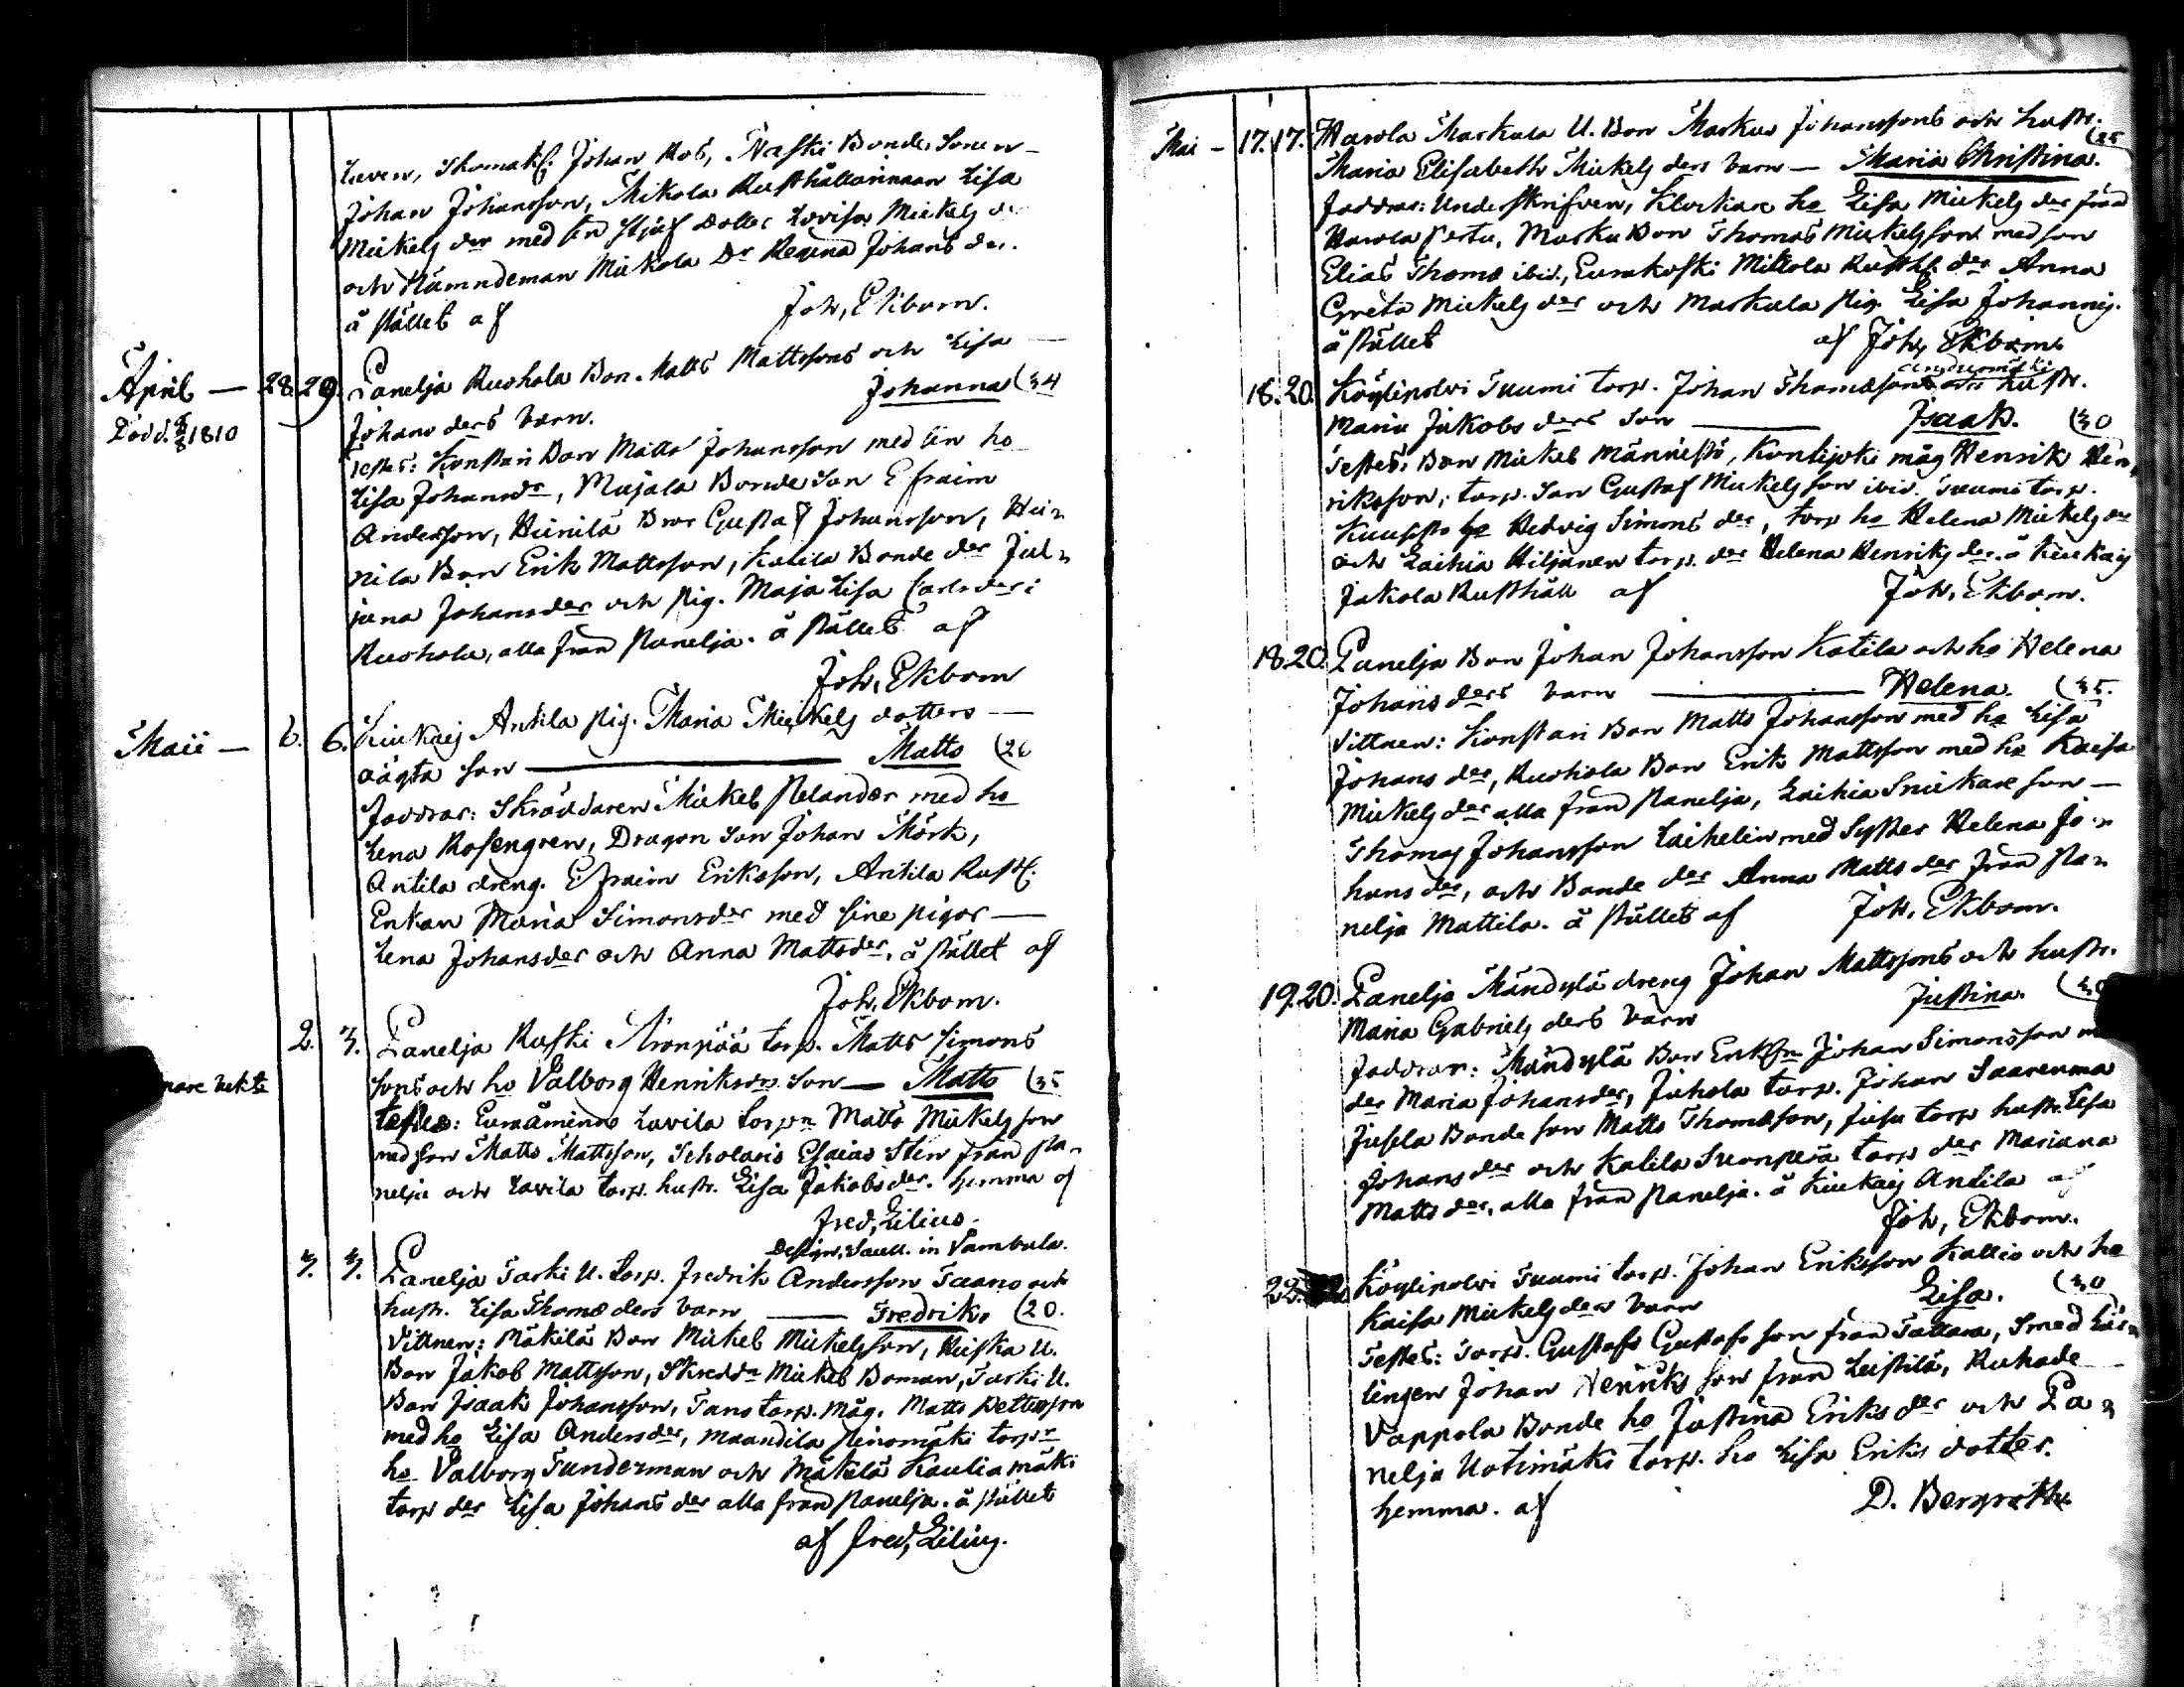 Johan Johansson, Mikola Rusthållarinnan Lisa
Mickels der med sin stjuf dotter Lovisa Mickels
och Nämndeman Mickola Dr Regina Johans der.
å stället af Joh, Ekbom.
April — 28. 29. Panelja Ruohola Bon. Matts Mattssons och Lisa —
Död. 1810 Johans ders barn. Johanna (34
Testes: Konstari Bon Matts Johansson med sin ho
Lisa Johansdr, Majala Bonde Son Efraim
Andersson, Heinilä Bror Gustaf Johansson, Hei-
nila Bon Erik Mattsson, Katila Bonde der Jul-
jana Johansder och pig. Maja Lisa Carlsder:
Ruohola, alla från Panelja. å stället af
Joh, Ekbom
Maii — 6. 6. Kiukais Antila pig. Maria Mickels dotters —
oägta son — Matts (26
Faddrar: Skräddaren Mickel Pelander med ho
Lena Rosengren, Dragon Son Johan Mörk,
Antila dreng. Efraim Eriksson, Antila Rusth.
Enkan Maria Simonsder med sine pigor —
Lena Johansder och Anna Mattsder. å stället af
Joh, Ekbom.
2. 3. Panelja Ruski torp. Matts Simons
sons och ho Valborg Henriksdr. Son — Matts (35
testes: Euraåminne Lavila torpn Matts Mickelsson
med son Matts Mattsson, Scholaris Esaias Sten från Pa-
nelja och Lavila torp. hustr. Lisa Jakobsder. hemma af
Fred, Lilius.
3. 3. Panelja Tarki U. torp. Fredrik Andersson Taano och
hustr. Lisa Thomæ ders barn — Fredrik, (20.
Vittnen: Mäkilä Bon Mickel Mickelsson, Huska U.
Bon Jakob Mattsson, Skreddn Mickel Boman, Tarki U.
Bon Isaak Johansson, Tano torp. måg. Matts Pettersson
med ho Lisa Andersder, maandila Peromäki torpr
ho Valborg Tunderman och Mäkelä Kauliamäki
torp der Lisa Johans der alla från Panelja. å stället
af Fred, Lilius.
Mai — 17. 17. Harola Markula U. Bon Markus Johanssons och hustr.
Maria Elisabeth Mickels ders barn — Maria Christina. (25
Faddrar: Underskrifven, Klockare ho Lisa Mickels der från
Harola Perttu, Marku Bon Thomas Mickelsson med son
Elias Thomæ ibid., Eurakoski Mikkola Rusth. der Anna
Greta Mickels der och Markula pig. Lisa Johannis.
å stället af Joh, Ekboms
18. 20. Köylipolvi Tuumi torp. Johan Thomæsons och hustr.
Maria Jakobs ders Son — Isaak. (30
Testes: Bon Mickel Männistö, Kontijoki måg Henrik Hen-
riksson, torp. Son Gustaf Mickelsson ibid. Tuumi torp.
ho Hedvig Simons der, torp ho Helena Mickels der
och Laihia Hiljanen torp. der Helena Henriks der. å Kiukais
Jakola Rusthåll af Joh, Ekbom.
18. 20. Panelja Bon Johan Johansson Katila och ho Helena
Johans ders barn — Helena. (35.
Vittnen: Konstari Bon Matts Johansson med ho Lisa
Johans der, Ruohola Bon Erik Mattsson med ho Kaisa
Mickels der alla från Panelja, Laihia Snickare son —
Thomas Johansson Laihelin med Syster Helena Jo-
hans der, och Bonde der Anna Matts der från Pa-
nelja Mattila. å stället af Joh, Ekbom.
19. 20. Panelja Mändylä dreng Johan Mattssons och hustr.
Maria Gabriels ders barn Justina.
Faddrar: Mändylä Bon Johan Simonsson
der Maria Johansder, Juhola torp. Johan Saarenmaa
Jusela Bonde son Matts Thomæson, Jusu torp hustr. Lisa
Johans der och Katila torp der Mariana
Matts der, alla från Panelja. å Kiukais Antila af
Joh, Ekbom.
22. Köylipolvi Tuumi torp. Johan Eriksson Kallio och ho
Kaisa Mickels ders barn Lisa. (30
Testes: Torp. Gustafs Gustafsson från Tattara, Smed Lär-
lingen Johan Henriksson från Leistilä, Ruhade
Vappola Bonde ho Justina Eriks der och Pa-
nelja Uotimäki torp. ho Lisa Eriks dotter.
hemma. af D. Bergroth